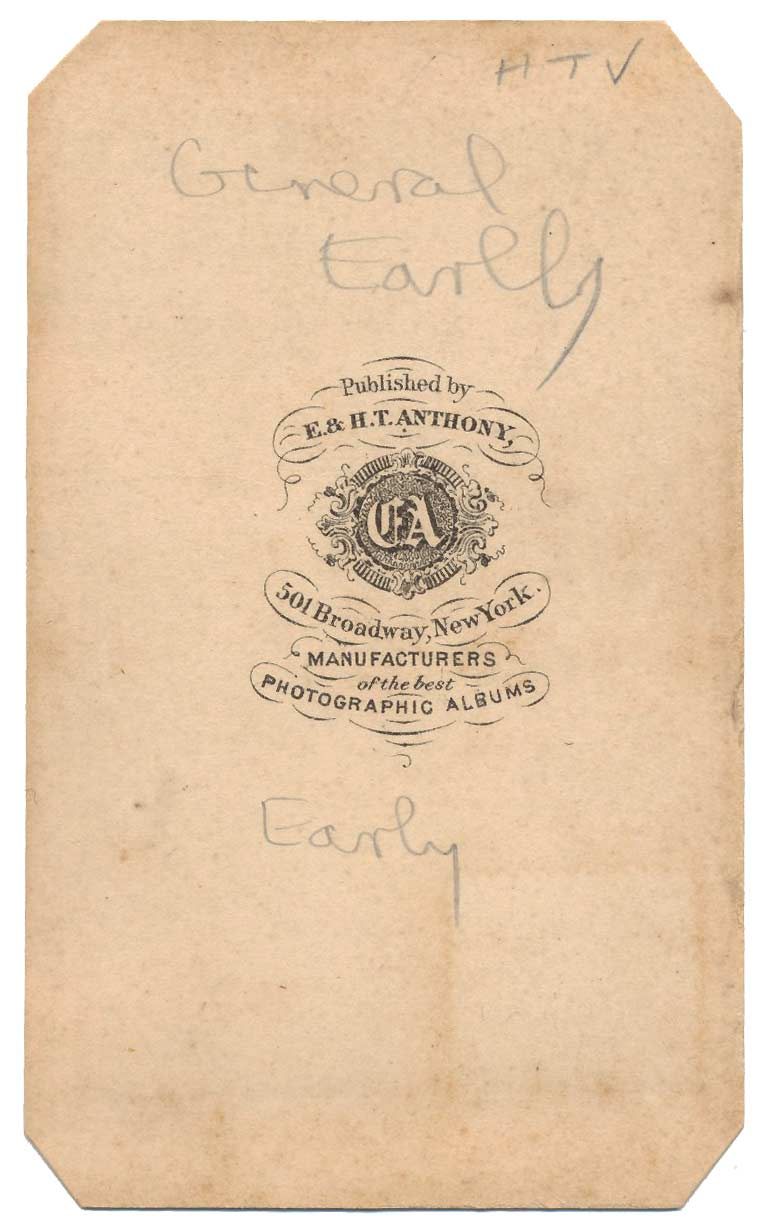 HTV
General
Earlly
Published by
E. & H.T. ANTHONY,
EA
501 Broadway, New York.
MANUFACTURERS
of the best
PHOTOGRAPHIC ALBUMS
Early